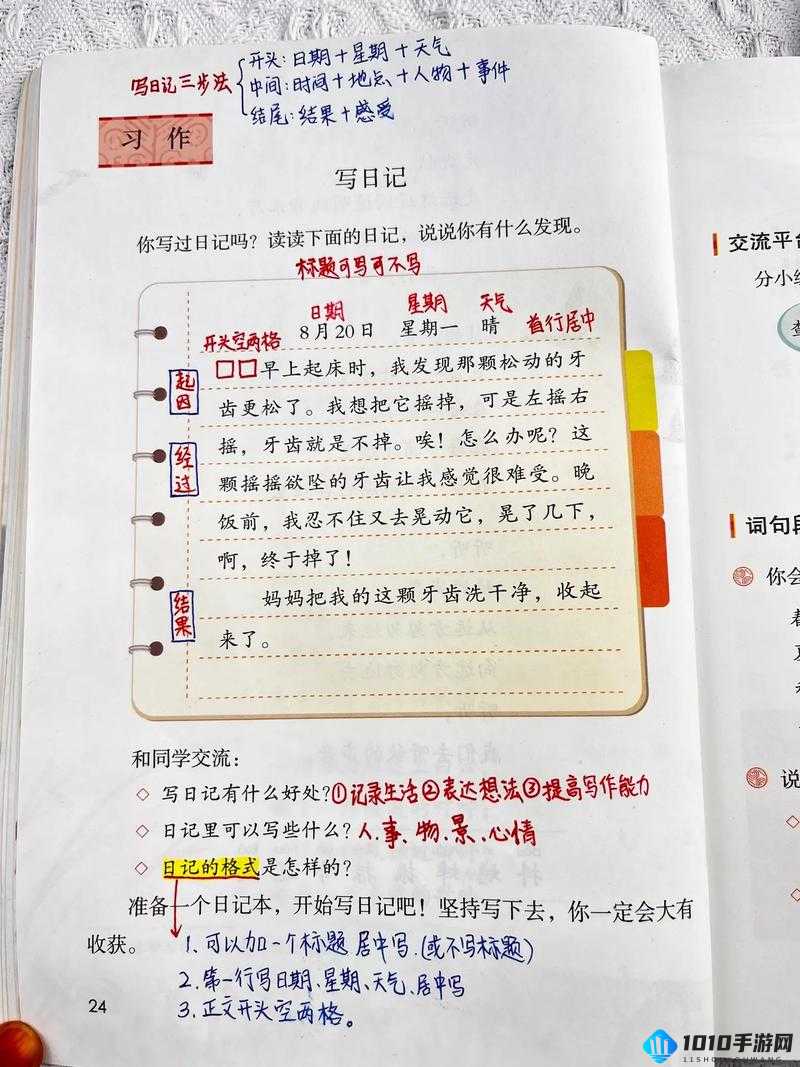 开头:日期+星期+天气
写日记三步法
中间:时间+地点+人物+事件
结尾:结果+感受
习 作
写日记
你写过日记吗？读读下面的日记，说说你有什么发现。
标题可写可不写
日期 星期 天气
开头空两格 8月20日 星期一 晴 首行居中
起因
□□早上起床时，我发现那颗松动的牙
齿更松了。我想把它摇掉，可是左摇右
经过
摇，牙齿就是不掉。唉！怎么办呢？这
颗摇摇欲坠的牙齿让我感觉很难受。晚
饭前，我忍不住又去晃动它，晃了几下，
啊，终于掉了！
结果
妈妈把我的这颗牙齿洗干净，收起
来了。
和同学交流：
◇ 写日记有什么好处?①记录生活②表达想法③提高写作能力
◇ 日记里可以写些什么？人、事、物、景、心情
◇ 日记的格式是怎样的？
准备一个日记本，开始写日记吧！坚持写下去，你一定会大有
收获。
1.可以加一个标题 居中写.(或不写标题)
2.第一行写日期、星期、天气、居中写
3.正文开头空两格。
24
交流平台
分小组
词句段
你会
说
1010手游网